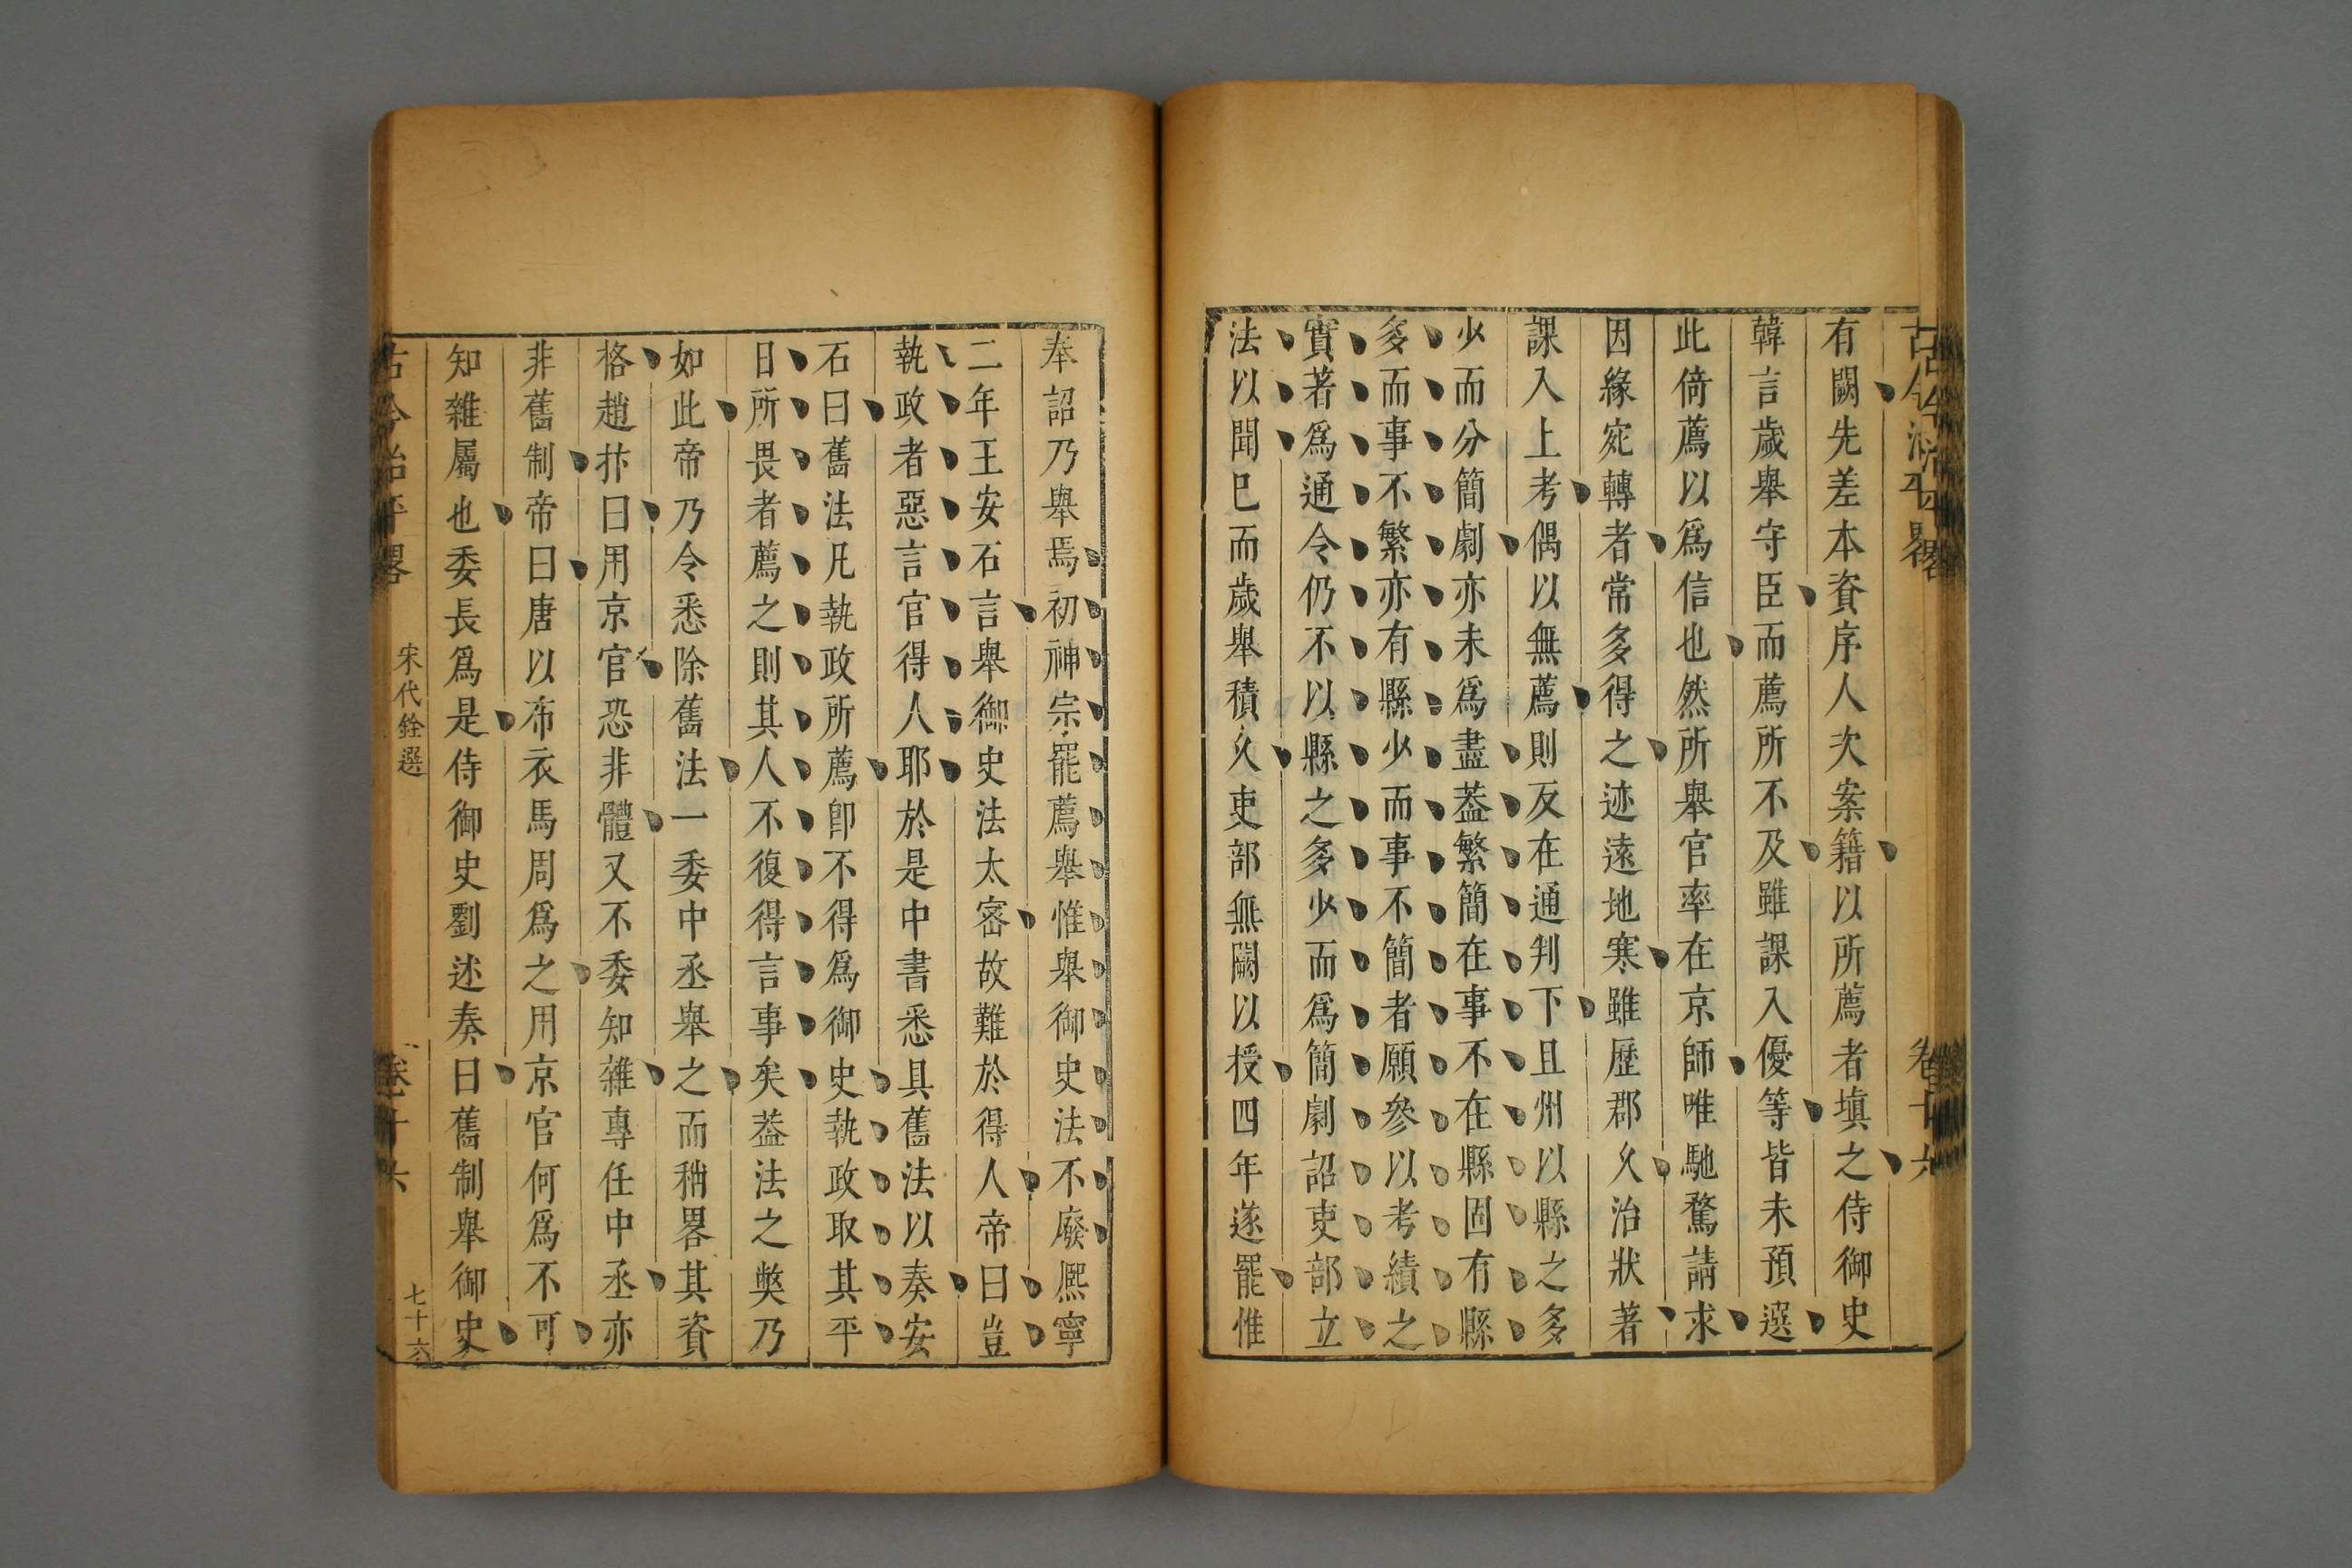 古今治平畧
卷十六
有闕先差本資序人次案籍以所薦者填之侍御史
韓言歲舉守臣而薦所不及雖課入優等皆未預選
此倚薦以爲信也然所舉官率在京師唯馳騖請求
因緣宛轉者常多得之迹遠地寒雖歷郡久治狀著
課入上考偶以無薦則反在通判下且州以縣之多
少而分簡劇亦未爲盡葢繁簡在事不在縣固有縣
多而事不繁亦有縣少而事不簡者願參以考績之
實著爲通令仍不以縣之多少而爲簡劇詔吏部立
法以聞已而歲舉積久吏部無闕以授四年遂罷惟
奉詔乃舉焉初神宗罷薦舉惟舉御史法不廢熈寧
二年王安石言舉御史法太密故難於得人帝曰豈
執政者惡言官得人耶於是中書悉具舊法以奏安
石曰舊法凡執政所薦卽不得爲御史執政取其平
日所畏者薦之則其人不復得言事矣葢法之獘乃
如此帝乃令悉除舊法一委中丞舉之而稍畧其資
格趙抃曰用京官恐非體又不委知雜專任中丞亦
非舊制帝曰唐以布衣馬周爲之用京官何爲不可
知雜屬也委長爲是侍御史劉述奏曰舊制舉御史
古今治平畧
宋代銓選
卷十六
七十六